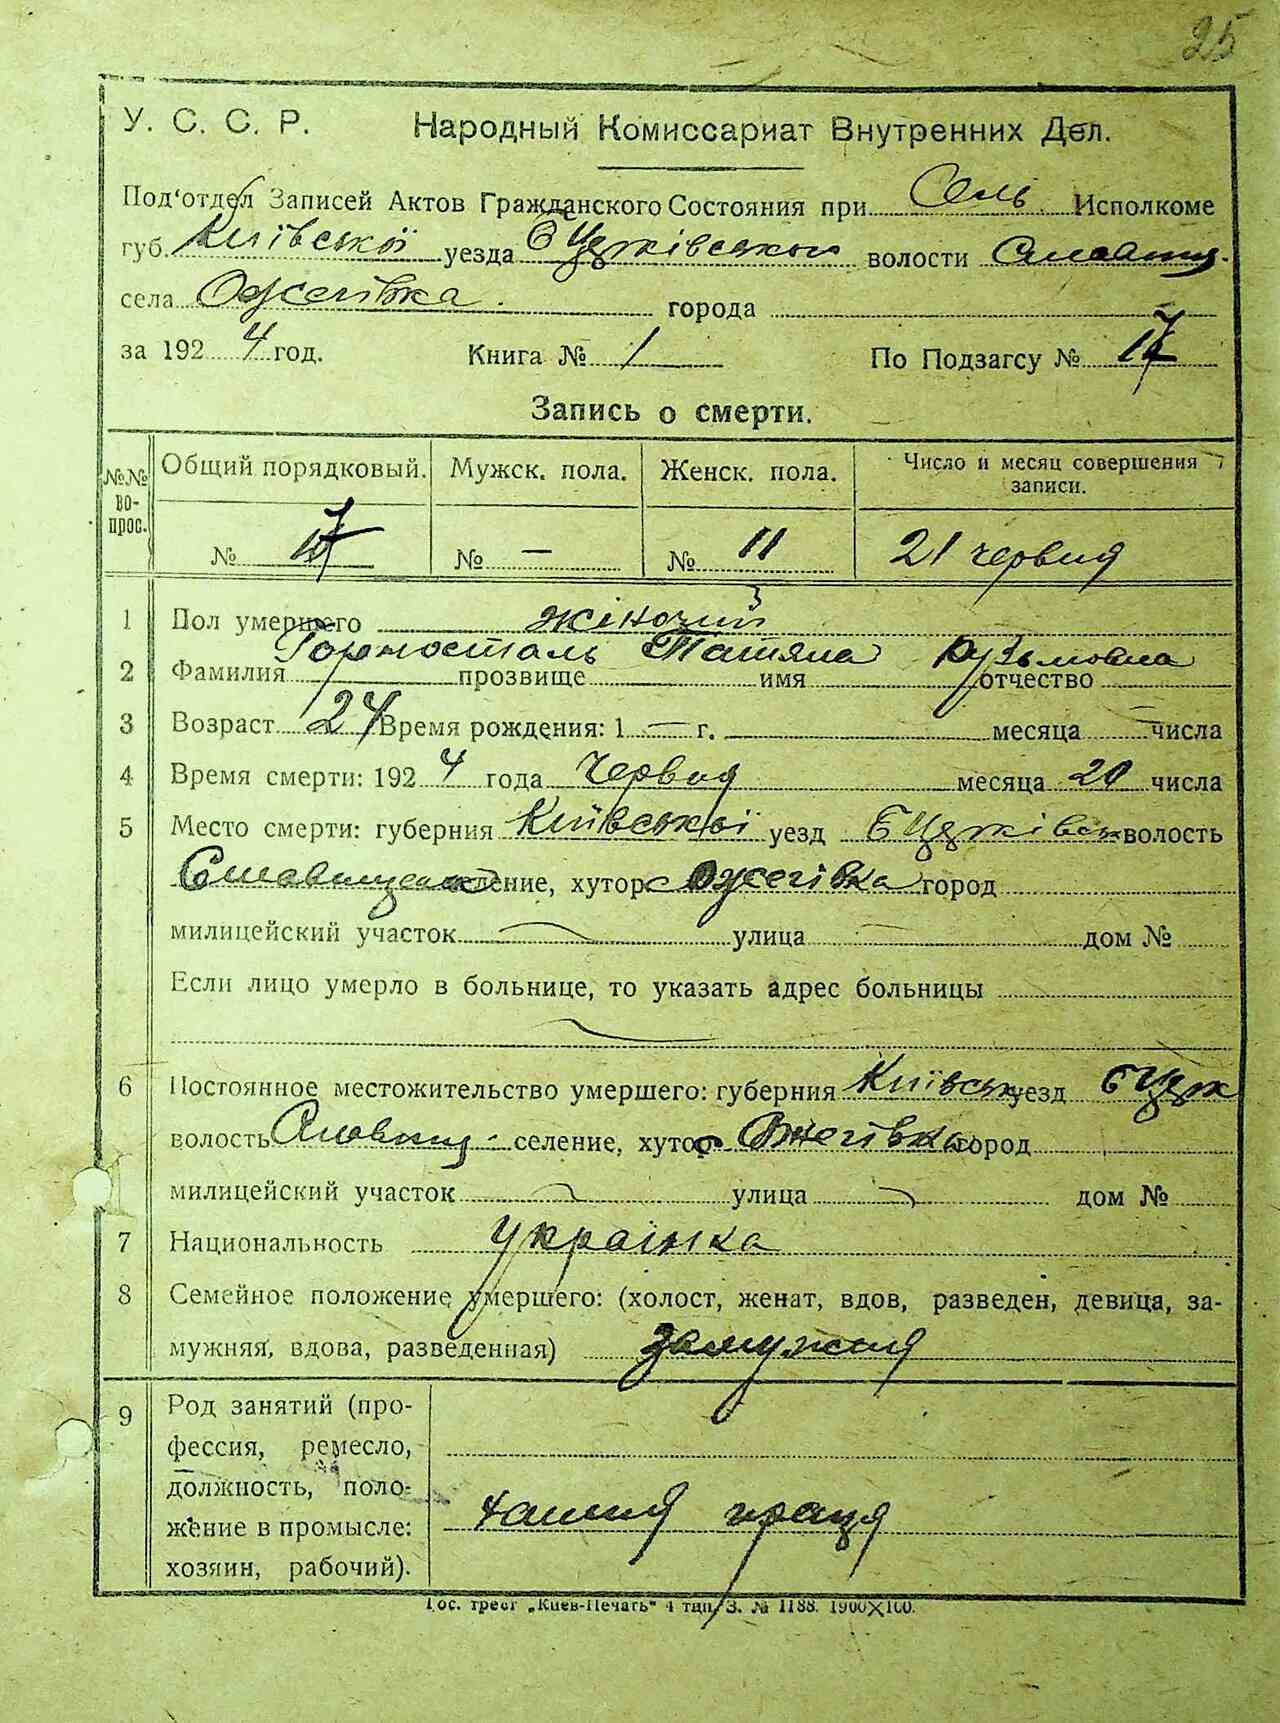 25
У. С. С. Р. Народный Комиссариат Внутренних Дел.
Под‘отдел Записей Актов Гражданского Состояния при Сель Исполкоме
губ. Київської уезда БЦерківськои волости
села Ожегівка города
за 1924 год. Книга № 1 По Подзагсу № 17
Запись о смерти.
№№ во- прос. Общий порядковый. Мужск. пола. Женск. пола. Число и месяц совершения записи.
№ 17 № — № 11 21 червня
1 Пол умершего жіночий
2 Фамилия Горносталь прозвище имя Татяна отчество Кузьмовна
3 Возраст 24 Время рождения: 1 — г. месяца — числа
4 Время смерти: 1924 года Червня месяца 20 числа
5 Место смерти: губерния Київської уезд БЦерківськ волость
Ставищанск селение, хутор Ожегівка город
милицейский участок улица дом №
Если лицо умерло в больнице, то указать адрес больницы
6 Постоянное местожительство умершего: губерния Київськ уезд БЦерк
волость Ставищ селение, хутор Ожегівка город
милицейский участок улица дом №
7 Национальность українка
8 Семейное положение умершего: (холост, женат, вдов, разведен, девица, за-
мужняя, вдова, разведенная) замужня
9 Род занятий (про-
фессия, ремесло,
должность, поло-
жение в промысле:
хозяин, рабочий).
хатня праця
Гос. трест „Киев-Печать“ 4 тип. З. № 1188. 1900✕100.